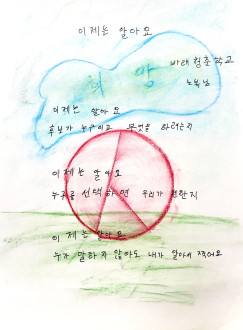 이제는 알아요
바래청춘학교
희망
노복남
이제는 알아요
후보가 누구이고 무엇을 하려는지
이제는 알아요
누구를 선택하면 우리가 편한지
이제는 알아요
누가 말하지 않아도 내가 알아서 찍어요